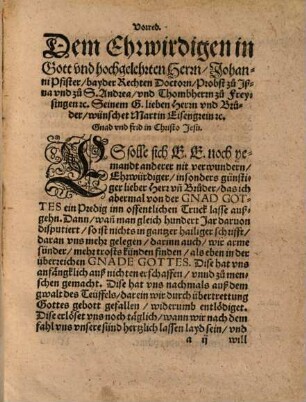 Vorred.
Dem Ehrwirdigen in
Gott vnd hochgelehrten Herrn/ Johan-
ni Pfister/ bayder Rechten Doctorn/ Probst zů Jß-
na vnd zů S. Andrea/ vnd Thombherrn zů Freysi-
singen ꝛc. Seinem G. lieben Herrn vnd Brů-
der/ wünschet Martin Eisengrein ꝛc.
Gnad vnd frid in Christo Jesu.
ES solle sich E. E. noch ye-
mandt anderer nit verwundern/
Ehrwürdiger/ insonders günsti-
ger lieber Herr vñ Brůder/ das ich
abermal von der GNAD GOT-
TES ein Predig inn offentlichen Truck lasse auß-
gehn. Dann/ waň man gleich hundert Jar daruon
disputiert/ so ist nichts in gantzer hailiger schrifft/
daran vns mehr gelegen/ darinn auch/ wir arme
sünder/ mehr trosts künden finden/ als eben in der
überreichen GNADE GOTTES. Dise hat vns
anfängklich auß nichten erschaffen/ vnnd zů men-
schen gemacht. Dise hat vns nachmals auß dem
gwalt des Teüffels/ darein wir durch übertrettung
Gottes gebott gefallen/ widerumb entlödiget.
Dise erlöset vns noch täglich/ wann wir nach dem
fahl vns vnsere sünd hertzlich lassen layd sein/ vnd
a ij will